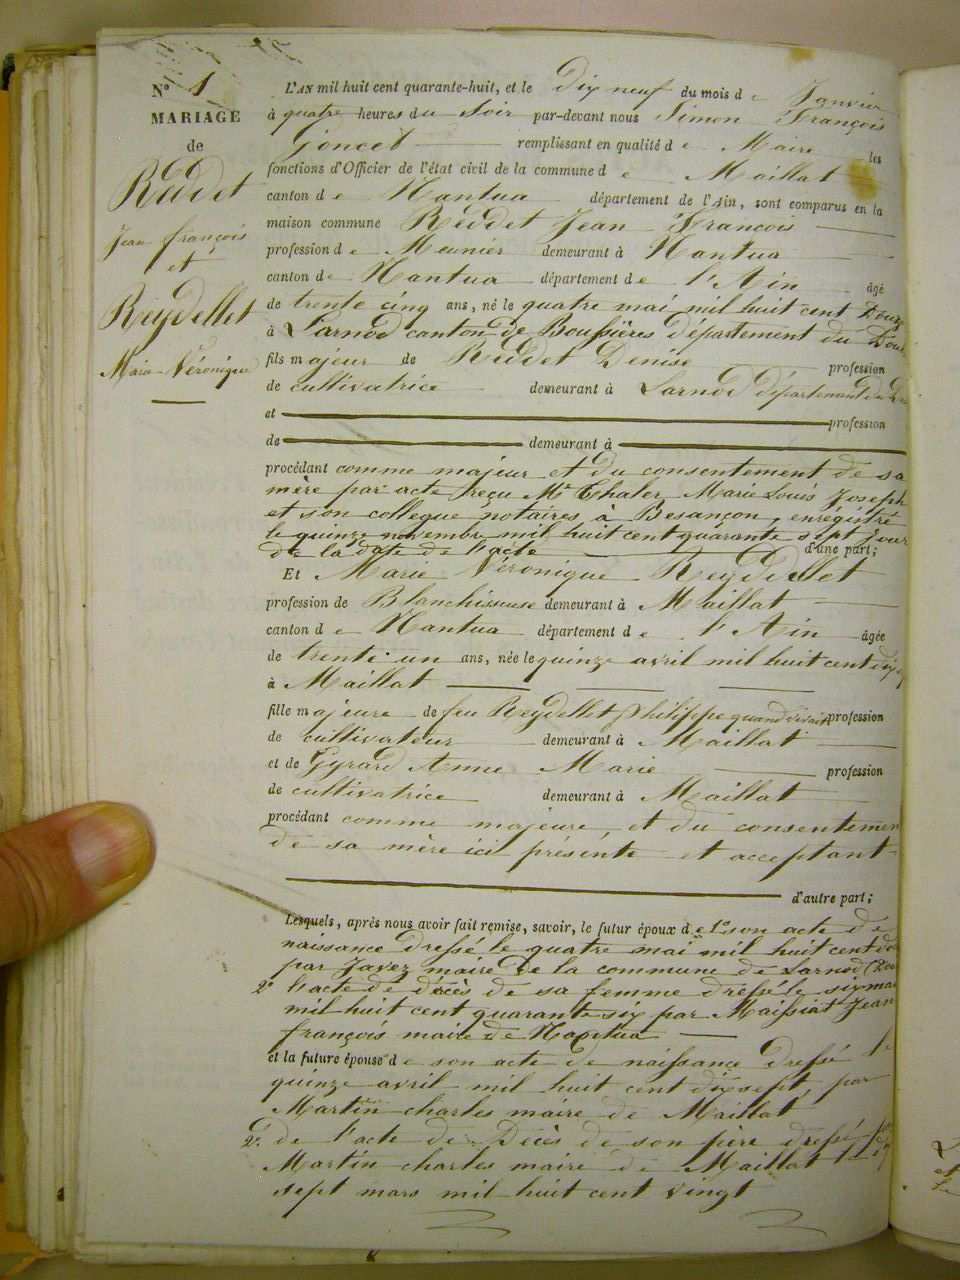 N° 1
MARIAGE
de
Reddet
Jean françois
et
Reydellet
Marie Véronique
L'AN mil huit cent quarante-huit, et le Dix neuf du mois de Janvier
à quatre heures du Soir par-devant nous Simon François
Goncet remplissant en qualité de Maire les
fonctions d'Officier de l'état civil de la commune de Maillat
canton de Nantua département de l'Ain, sont comparus en la
maison commune Reddet Jean François
profession de Meunier demeurant à Nantua
canton de Nantua département de l'Ain âgé
de trente cinq ans, né le quatre mai mil huit cent Douze
à Larnod canton de Boussières département du Doubs
fils majeur de Reddet Denise profession
de cultivatrice demeurant à Larnod département du
et profession
de demeurant à
procédant comme majeur et du consentement de sa
mère par acte reçu Me Thaler Marie Louis Joseph
et son collègue notaires à Besançon, enrégistré
le quinze novembre mil huit cent quarante sept jour
de la date de l'acte d'une part;
Et Marie Véronique Reydellet
profession de Blanchisseuse demeurant à Maillat
canton de Nantua département de l'Ain âgée
de trente un ans, née le quinze avril mil huit cent dix
à Maillat
fille majeure de feu Reydellet Philippe quand vivait profession
de cultivateur demeurant à Maillat
et de Gyrard Anne Marie profession
de cultivatrice demeurant à Maillat
procédant comme majeure, et du consentemen
de sa mère ici présente et acceptant
d'autre part;
Lesquels, après nous avoir fait remise, savoir, le futur époux de 1° son acte de
naissance dressé le quatre mai mil huit cent do
par Javez maire de la commune de Larnod
2° l'acte de décès de sa femme dressé le six mai
mil huit cent quarante six par Maissiat Jean
françois maire de Nantua
et la future épouse de son acte de naissance dressé le
quinze avril mil huit cent dix sept, par
Martin charles maire de Maillat
2°. de l'acte de Décès de son père dressé
Martin charles maire de Maillat le
sept mars mil huit cent vingt